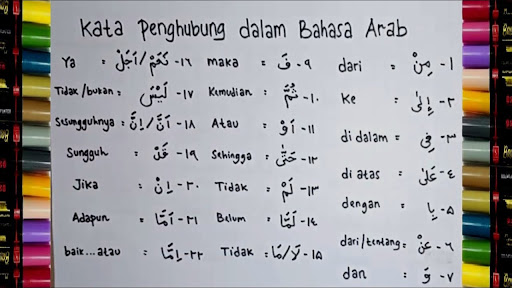 Kata Penghubung dalam Bahasa Arab
dari = ١- مِنْ
ke = ٢- إِلَى
di dalam = ٣- فِي
di atas = ٤- عَلَى
dengan = ٥- بِا
dari/tentang = ٦- عَنْ
dan = ٧- وَ
maka = ٩- فَ
Kemudian = ١٠- ثُمَّ
Atau = ١١- اَوْ
Sehingga = ١٢- حَتَّى
Tidak = ١٣- لَمْ
Belum = ١٤- لَمَّا
Tidak = ١٥- لَا/مَا
Ya = ١٦- نَعَمْ/اَجَلْ
Tidak/bukan = ١٧- لَيْسَ
Sesungguhnya = ١٨- اَنَّ/اِنَّ
Sungguh = ١٩- قَدْ
Jika = ٢٠- اِنْ
Adapun = ٢١- اَمَّا
baik...atau = ٢٢- اِمَّا